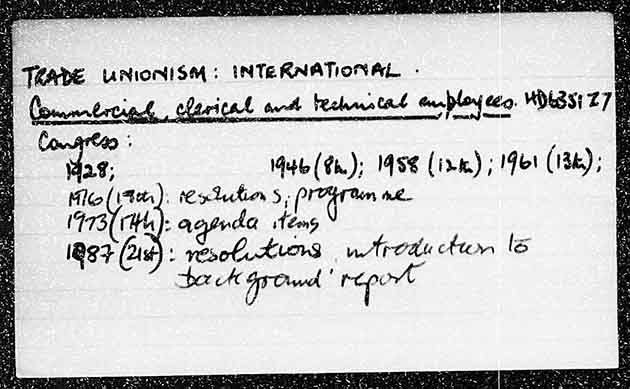 TRADE UNIONISM: INTERNATIONAL.
Commercial, clerical and technical employees. HD6351 Z7
Congress:
1928; 1946 (8th); 1958 (12th); 1961 (13th);
1976 (18th): resolutions; programme
1973 (17th): agenda items
1987 (21st): resolutions, introduction to
'background' report